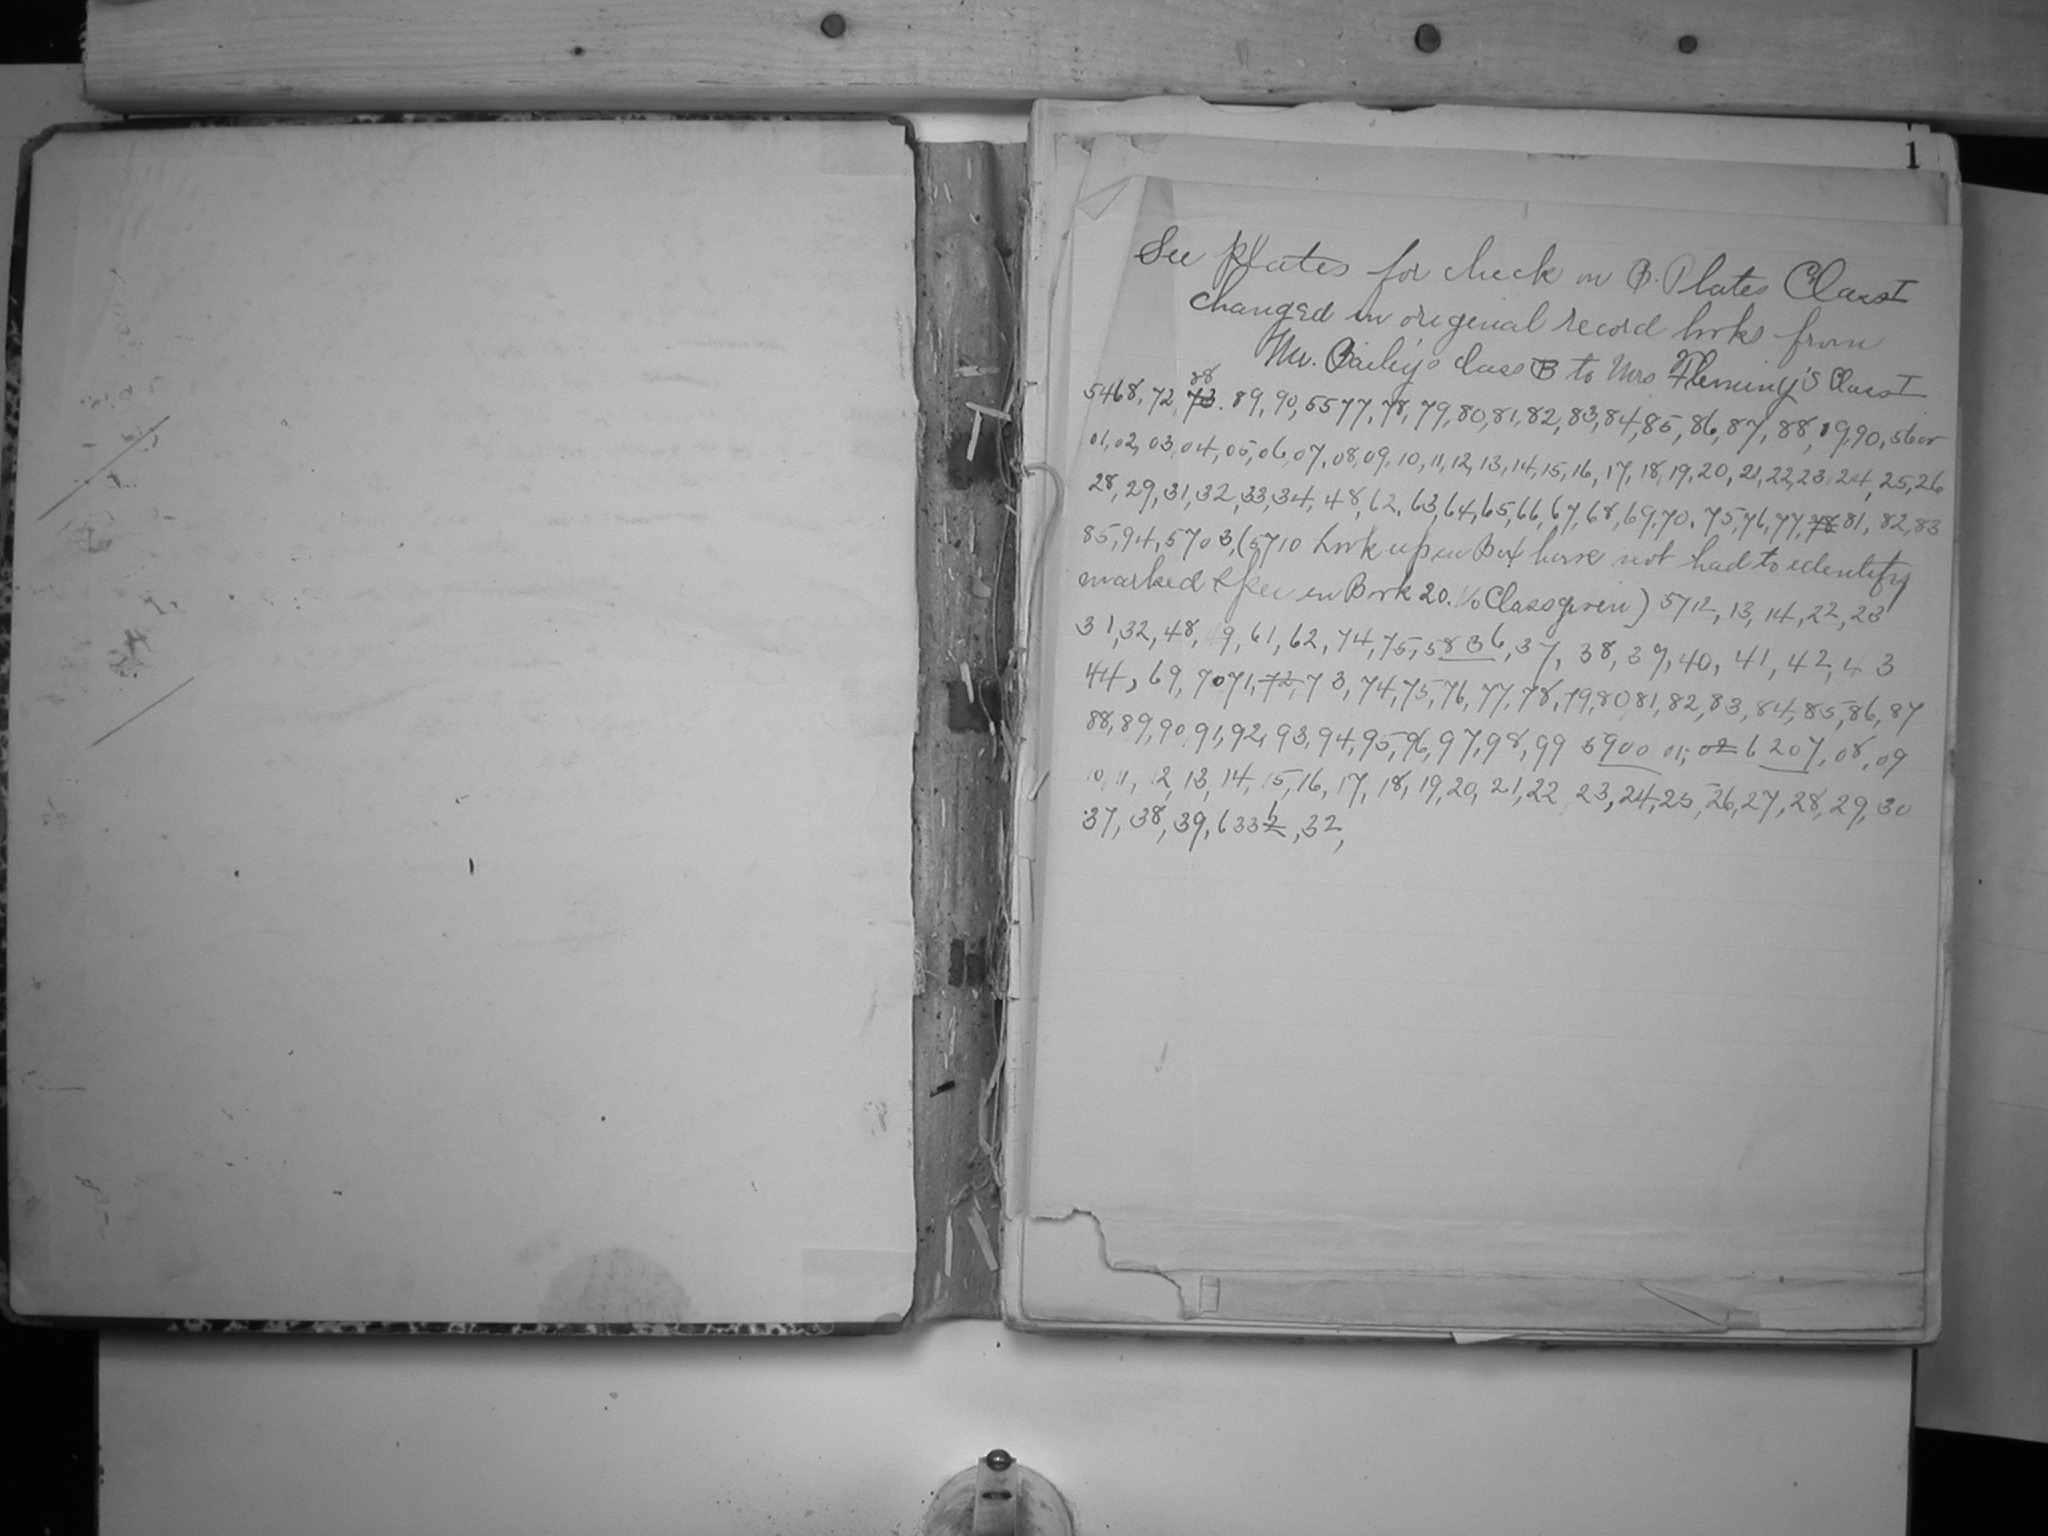 1
See Plates for check on B. Plates Class I
changed in original record books from
Mr. Bailey's class B to Mrs Fleming's Class I
88
5468, 72, 73. 89, 90, 5577, 78, 79, 80, 81, 82, 83, 84, 85, 86, 87, 88, 89, 90, 5600
01, 02, 03, 04, 05, 06, 07, 08, 09, 10, 11, 12, 13, 14, 15, 16, 17, 18, 19, 20, 21, 22, 23, 24, 25, 26
28, 29, 31, 32, 33, 34, 48, 62, 63, 64, 65, 66, 67, 68, 69, 70, 75, 76, 77, 78 81, 82, 83
85, 94, 5703, (5710 look up in Box have not had to identify
marked Spec in Book 20. No Class given) 5712, 13, 14, 22, 23
31, 32, 48, 49, 61, 62, 74, 75, 5836, 37, 38, 39, 40, 41, 42, 43
44, 69, 70 71, 72, 73, 74, 75, 76, 77, 78, 79, 80 81, 82, 83, 84, 85, 86, 87
88, 89, 90, 91, 92, 93, 94, 95, 96, 97, 98, 99 5900 01, 02 6207, 08, 09
10, 11, 12, 13, 14, 15, 16, 17, 18, 19, 20, 21, 22, 23, 24, 25, 26, 27, 28, 29, 30
37, 38, 39, 6332, 32,